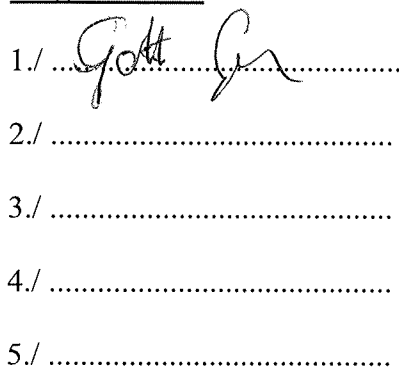 1./ ........Gott........................
2./ ........................................
3./ ........................................
4./ ........................................
5./ ........................................